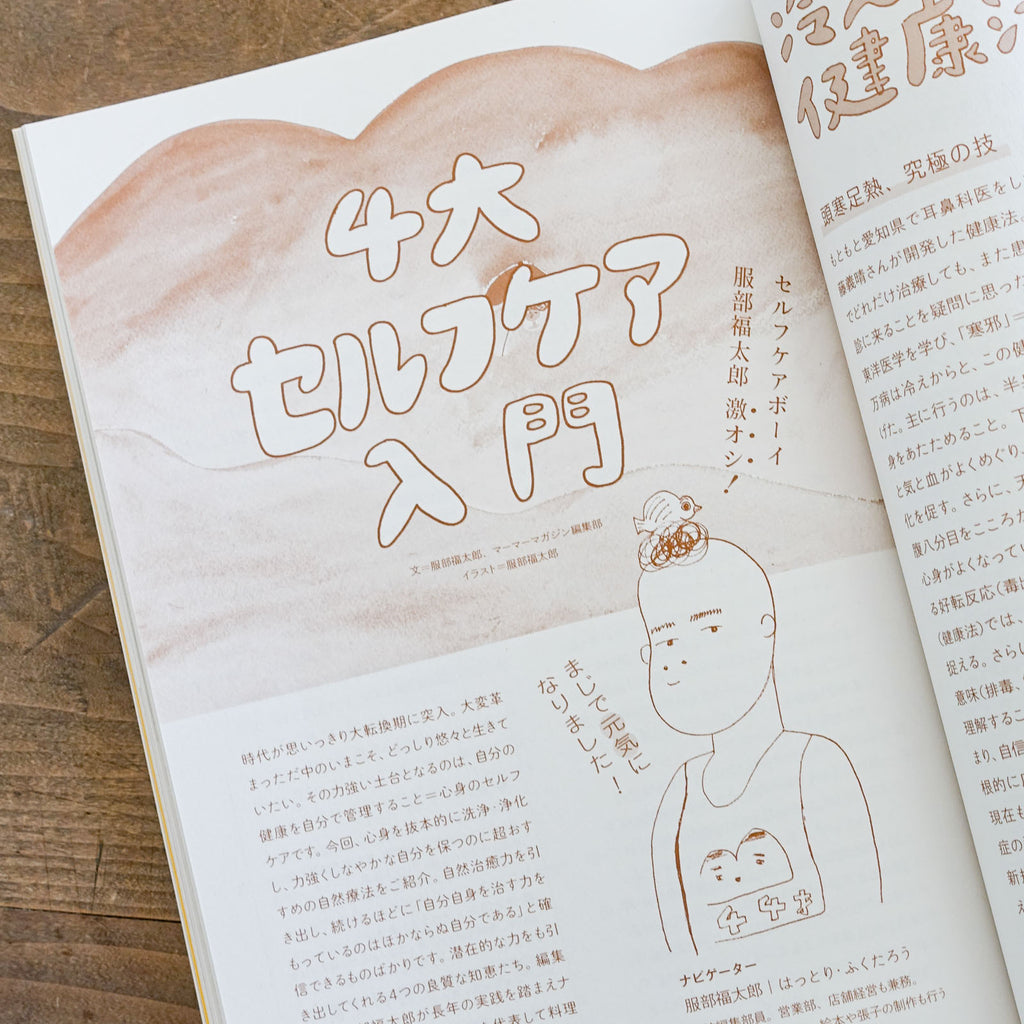 4大
セルフケア
入門
セルフケアボーイ
服部福太郎 激オシ!
文=服部福太郎、マーマーマガジン編集部
イラスト=服部福太郎
まじで元気に
なりました!
44才
時代が思いっきり大転換期に突入。大変革
まっただ中のいまこそ、どっしり悠々と生きて
いたい。その力強い土台となるのは、自分の
健康を自分で管理すること=心身のセルフ
ケアです。今回、心身を抜本的に洗浄・浄化
し、力強くしなやかな自分を保つのに超おす
すめの自然療法をご紹介。自然治癒力を引
き出し、続けるほどに「自分自身を治す力を
もっているのはほかならぬ自分である」と確
信できるものばかりです。潜在的な力をも引
き出してくれる4つの良質な知恵たち。編集
福太郎が長年の実践を踏まえナ
代表して料理
ナビゲーター
服部福太郎|はっとり・ふくたろう
編集部員。営業部、店舗経営も兼務。
絵本や張子の制作も行う
冷え
健康法
頭寒足熱、究極の技
もともと愛知県で耳鼻科医をし
藤義晴さんが開発した健康法。
でどれだけ治療しても、また患
診に来ることを疑問に思った
東洋医学を学び、「寒邪」=
万病は冷えからと、この健
げた。主に行うのは、半
身をあたためること。下
と気と血がよくめぐり、
化を促す。さらに、天
腹八分目をこころが
心身がよくなってい
る好転反応(毒出
(健康法)では、
捉える。さらし
意味(排毒、
理解するこ
まり、自信
根的に
現在も
症の
新
え